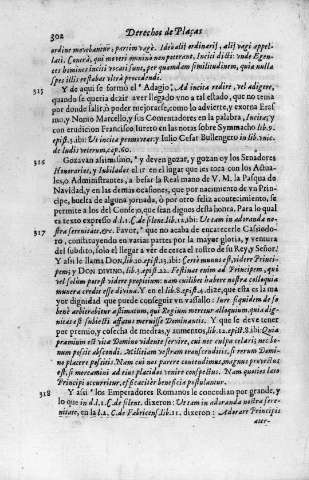 302 Derechos de Plaças
ordine movebantur, partim vagè. Ideò alij ordinarij, alij vagi appel-
lati. Contrà, qui moveri minimè non poterant, Inciti dicti: unde Egen-
tes homines inciti vocati sunt, per quandam similitudinem, quia nulla
spes illi restabat ultrà procedendi.
315 Y de aqui se formò el Adagio: Ad incita redire, vel adigere,
quando se queria dezir aver llegado uno a tal estado, que no tenia
por donde salir, ò poder mejorarse, como lo advierte, y exorna Eros
mo, y Nonio Marcello, y sus Comentadores en la palabra, Incita; y
con erudicion Francisco Iureto en las notas sobre Symmacho lib.9.
epist. ibi: Ut incita permiscet; y Iulio Cesar Bullengero in lib. unic.
de ludis veterum, cap.60.
316 Gozavan asimismo, y deven gozar, y gozan oy los Senadores
Honorarios, y Iubilados el ir en el lugar que les toca con los Actua-
les, o Administrantes, a besar la Real mano de V. M. la Pasqua de
Navidad, y en las demas ocasiones, que por nacimiento de va Prin-
cipe, buelta de alguna jornada, ò por otro feliz acontecimiento, se
permite a los del Consejo, que sean dignos desta honra. Para lo qual
es texto expresso d.l.1. C. de silent. ibi: Ut eam in adoranda no-
317 stra serenitate, &c. Favor, que no acaba de encarecerle Cassiodo-
ro, constituyendo en varias partes por la mayor gloria, y ventura
del subdito, solo el llegar a ver de cerca el rostro de su Rey, y Señor.
Y assi le llama DON, lib.
mens; y DON DIVINO, lib.3. epist.22. Festinat enim ad Principem, qui
vel solum potest videre propitium: non cuilibet habere nostra colloquia
munera credit esse divina. Y en el lib.8. epist. dize, que esta es la ma
yor dignidad que puede conseguir un vassallo: Iure siquidem de se
benè arbitrabitur æstimatum, qui Regium meretur alloquium, qua dig-
nitas est subiecti affatus meruisse Dominantis. Y que se deve tener
por premio, y cosecha de medras, y aumentos, lib.12. epist. ibi: Quia
præmium est vita Domino videnti servire, cui nec culpa celari; nec bo-
num possit abscondi. Militivm votum transcenditis, si rerum Domi-
no placere possitis. Nam cui nos parere contendimus, magnus provectus
est, si mereamini ad eius placidos venire conspectus. Nam quoties læto
Principi accurritur, efficaciter beneficia postulantur.
318 Y assi los Emperadores Romanos le concedian por grande, y
lo que in d.l.1. C. de silent. dixeron: Ut eam in adoranda nostra sere-
nitate, en la l.2. C. de Fabricens. lib.11. dixeron: Adorare Principis
ater-